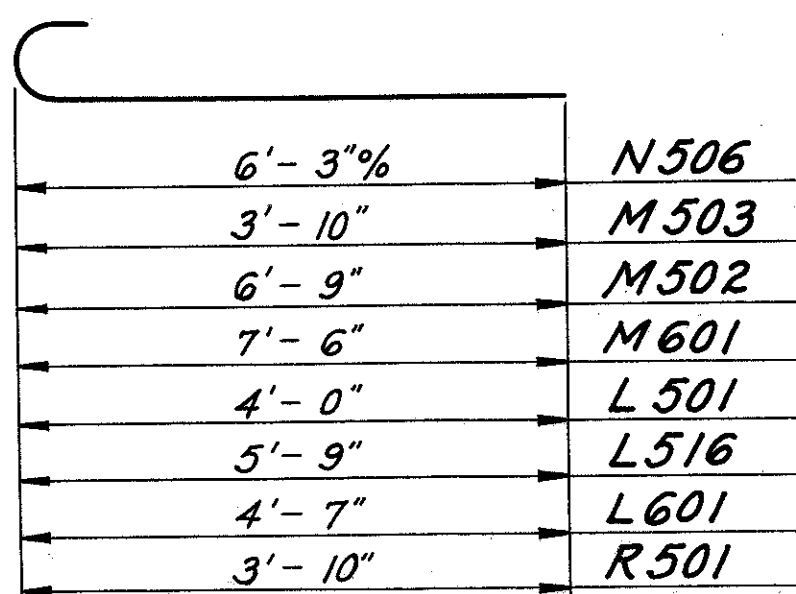 6'- 3"% N506
3'- 10" M503
6'- 9" M502
7'- 6" M601
4'- 0" L501
5'- 9" L516
4'- 7" L601
3'- 10" R501